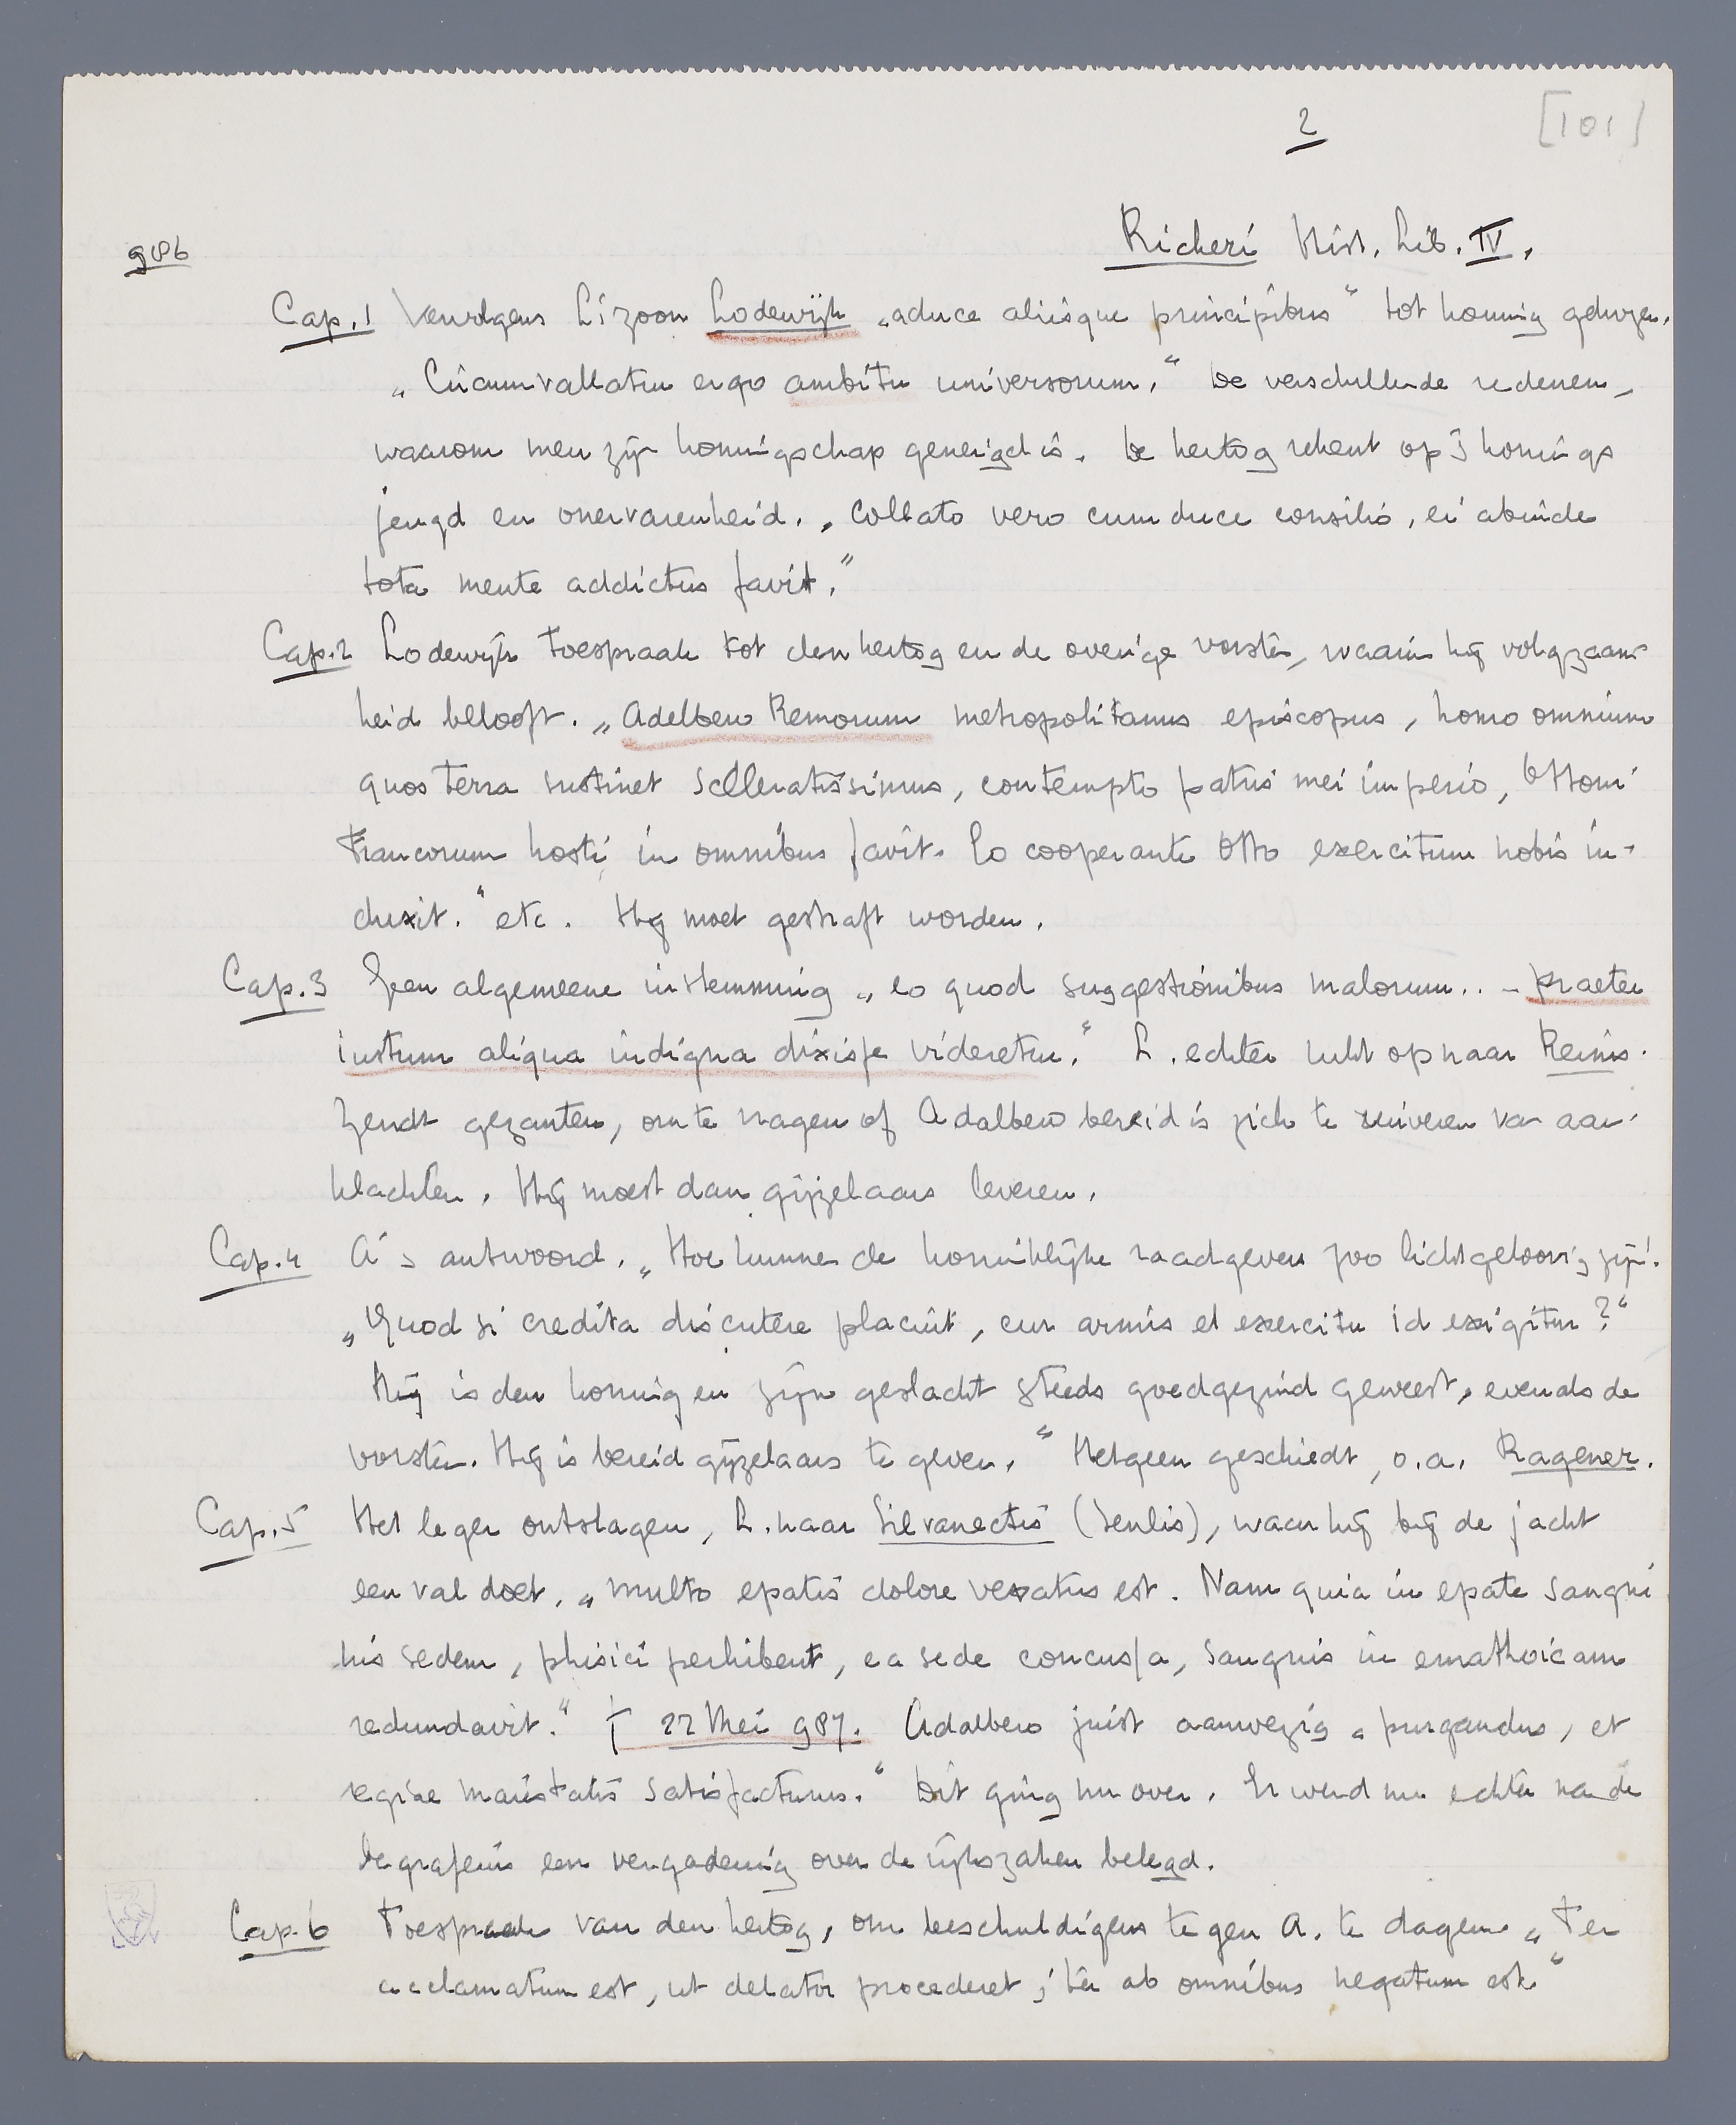 2
[101]
Richeri Hist. Lib. IV.
986
Cap. 1 Vervolgens L's zoon Lodewijk „a duce aliisque principibus" tot koning gekozen.
„Circumvallatur ergo ambitu universorum." De verschillende redenen,
waarom men zijn koningschap geneigd is. De hertog rekent op 's konings
jeugd en onervarenheid. „Collato vero cum duce consilio, ei abinde
tota mente addictus favit."
Cap. 2 Lodewijk toespraak tot den hertog en de overige vorsten, waarin hij volgzaam-
heid belooft. „Adelbero Remorum metropolitanus episcopus, homo omnium
quos terra sustinet sceleratissimus, contempto patris mei imperio, Ottoni
Francorum hosti in omnibus favit. Eo cooperante Otto exercitum nobis in-
duxit." etc. Hij moet gestraft worden.
Cap. 3 Geen algemeene instemming „eo quod suggestionibus malorum .. - praeter
iustum aliqua indigna dixisse videretur." L. echter rukt op naar Reims.
Zendt gezanten, om te vragen of Adalbero bereid is zich te zuiveren van aan-
klachten. Hij moest dan gijzelaars leveren.
Cap. 4 A's antwoord. „Hoe kunnen de koninklijke raadgevers zoo lichtgeloovig zijn!
„Quod si credita discutere placuit, cur armis et exercitu id exigitur?"
Hij is den koning en zijn geslacht steeds goedgezind geweest, evenals de
vorsten. Hij is bereid gijzelaars te geven." Hetgeen geschiedt, o.a. Ragener.
Cap. 5 Het leger ontslagen, L. naar Silvanectis (Senlis), waar hij bij de jacht
een val doet. „multo epatis dolore vexatus est. Nam quia in epate sangui
nis sedem, phisici perhibent, ea sede concussa, sanguis in emathoicam
redundavit." † 22 Mei 987. Adalbero juist aanwezig „purgandus, et
regiae maiestatis satisfacturus." Dit ging nu over. Er werd nu echter na de
begrafenis een vergadering over de rijkszaken belegd.
Cap. 6 Toespraak van den hertog, om beschuldigers tegen A. te dagen „Ter
acclamatum est, ut delator procederet; ter ab omnibus negatum est"